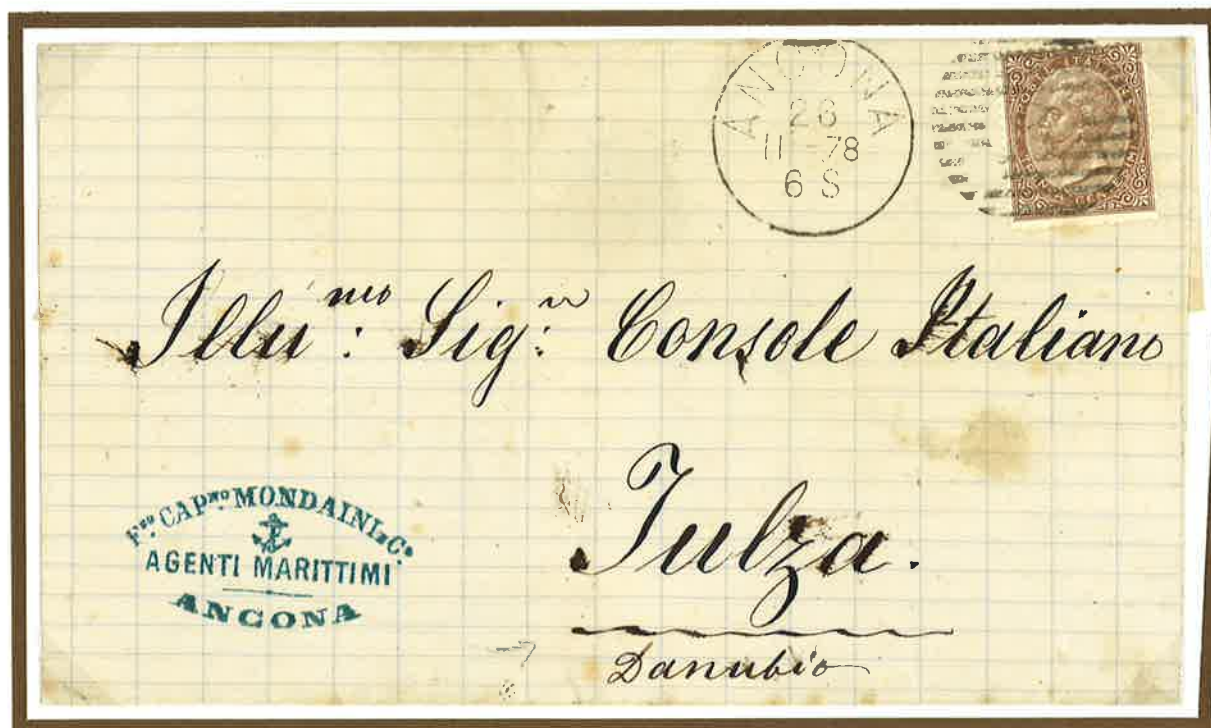 ANCONA
26
11 - 78
6 S
POSTE ITALIANE
Illu.mo Sig.r Console Italiano
Tulza.
Danubio
F.co CAP.no MONDAINI & C.o
AGENTI MARITTIMI
ANCONA